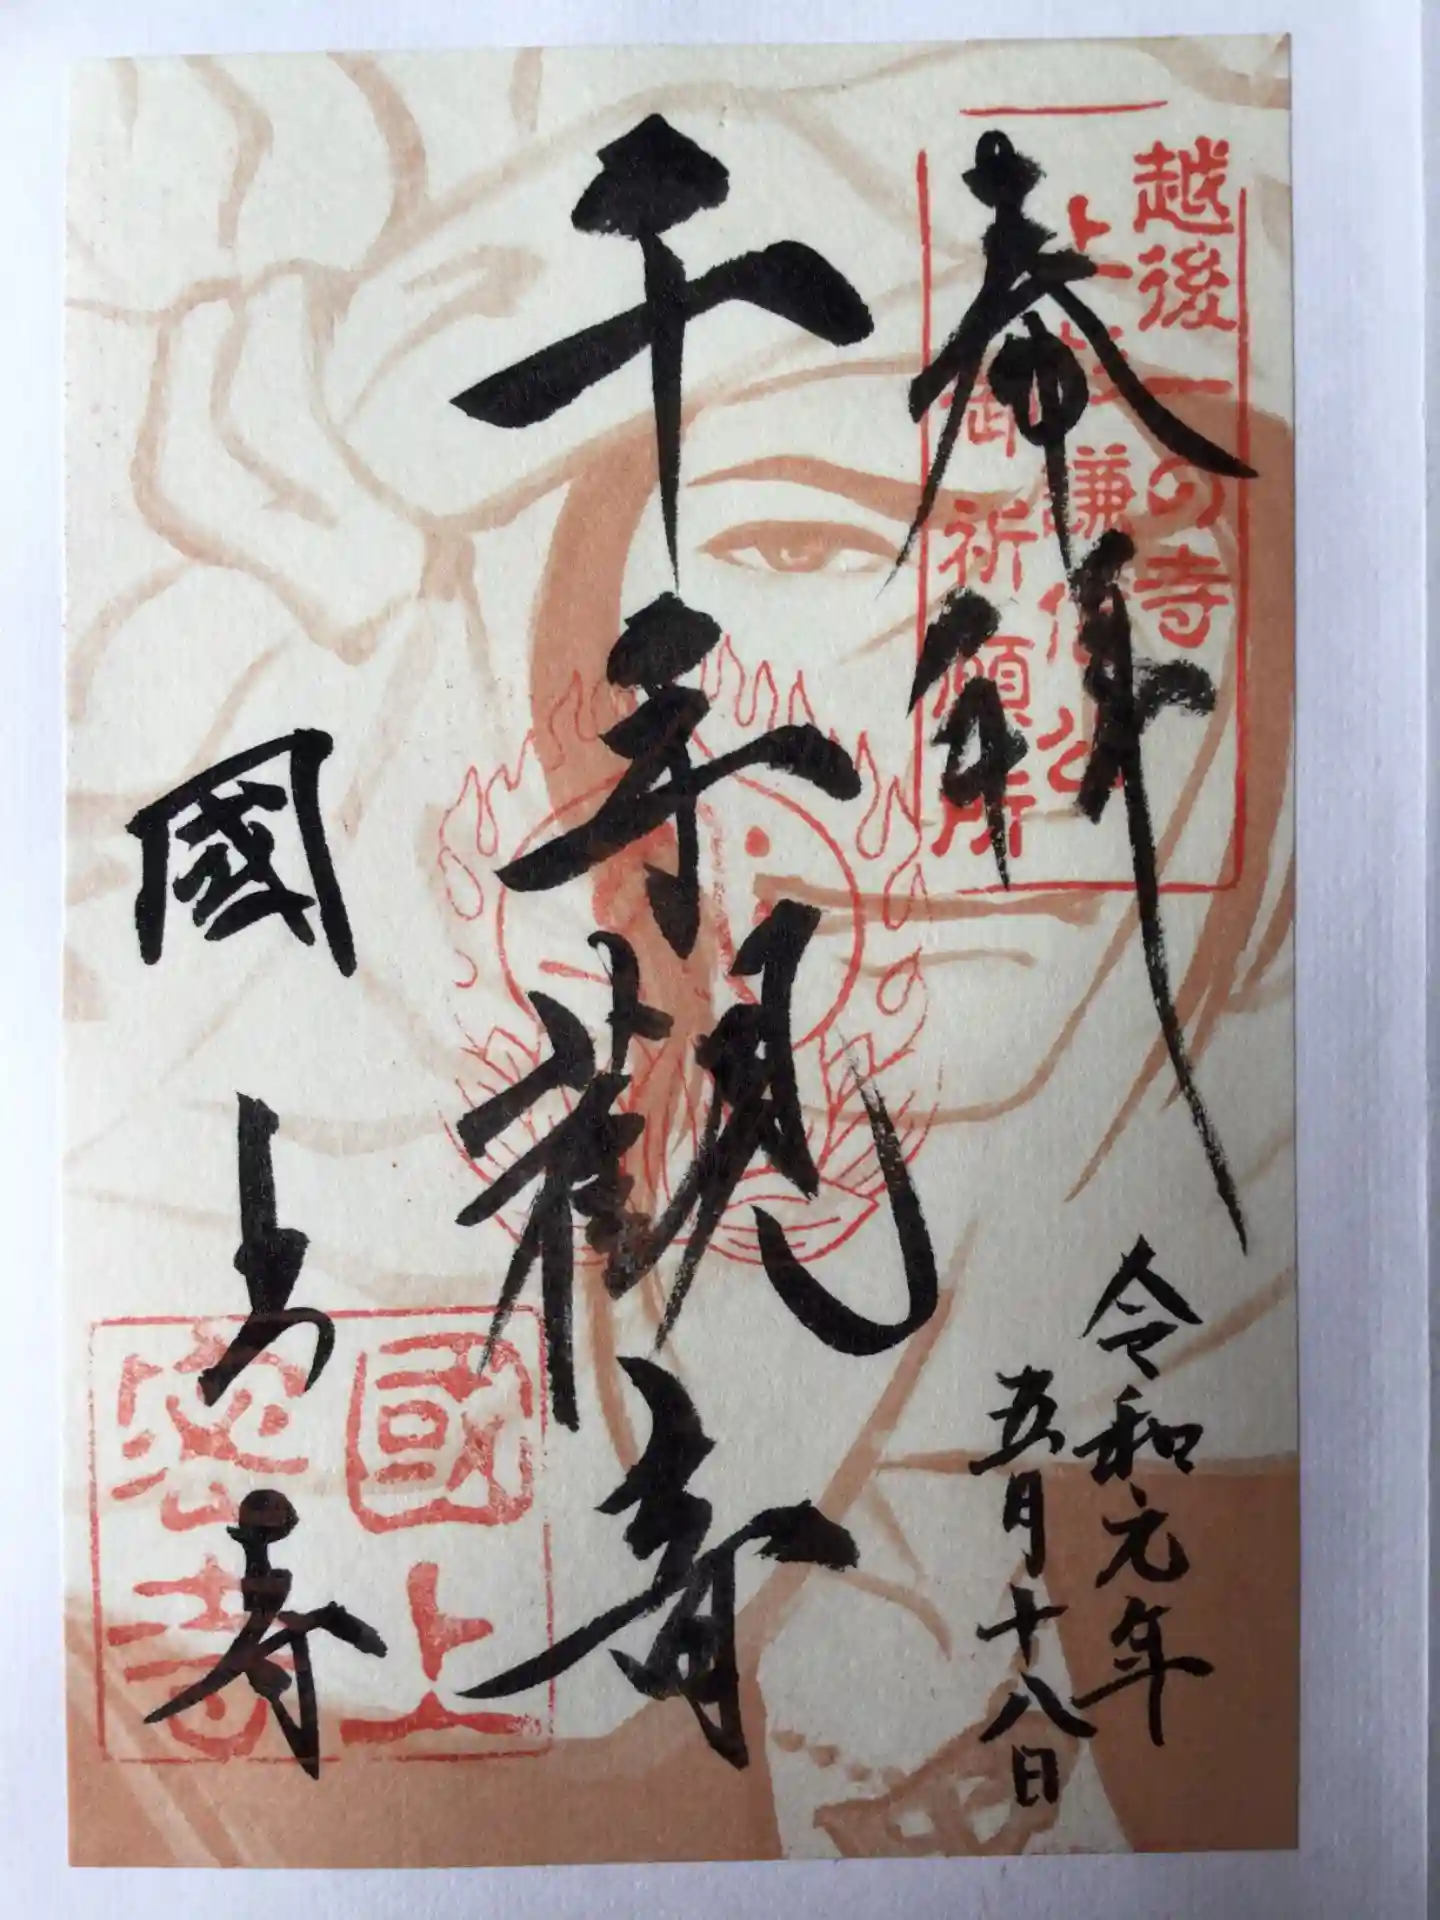 奉拝
越後一の寺
上杉謙信公
御祈願所
令和元年
五月十八日
千手観音
國上寺
國上
密寺